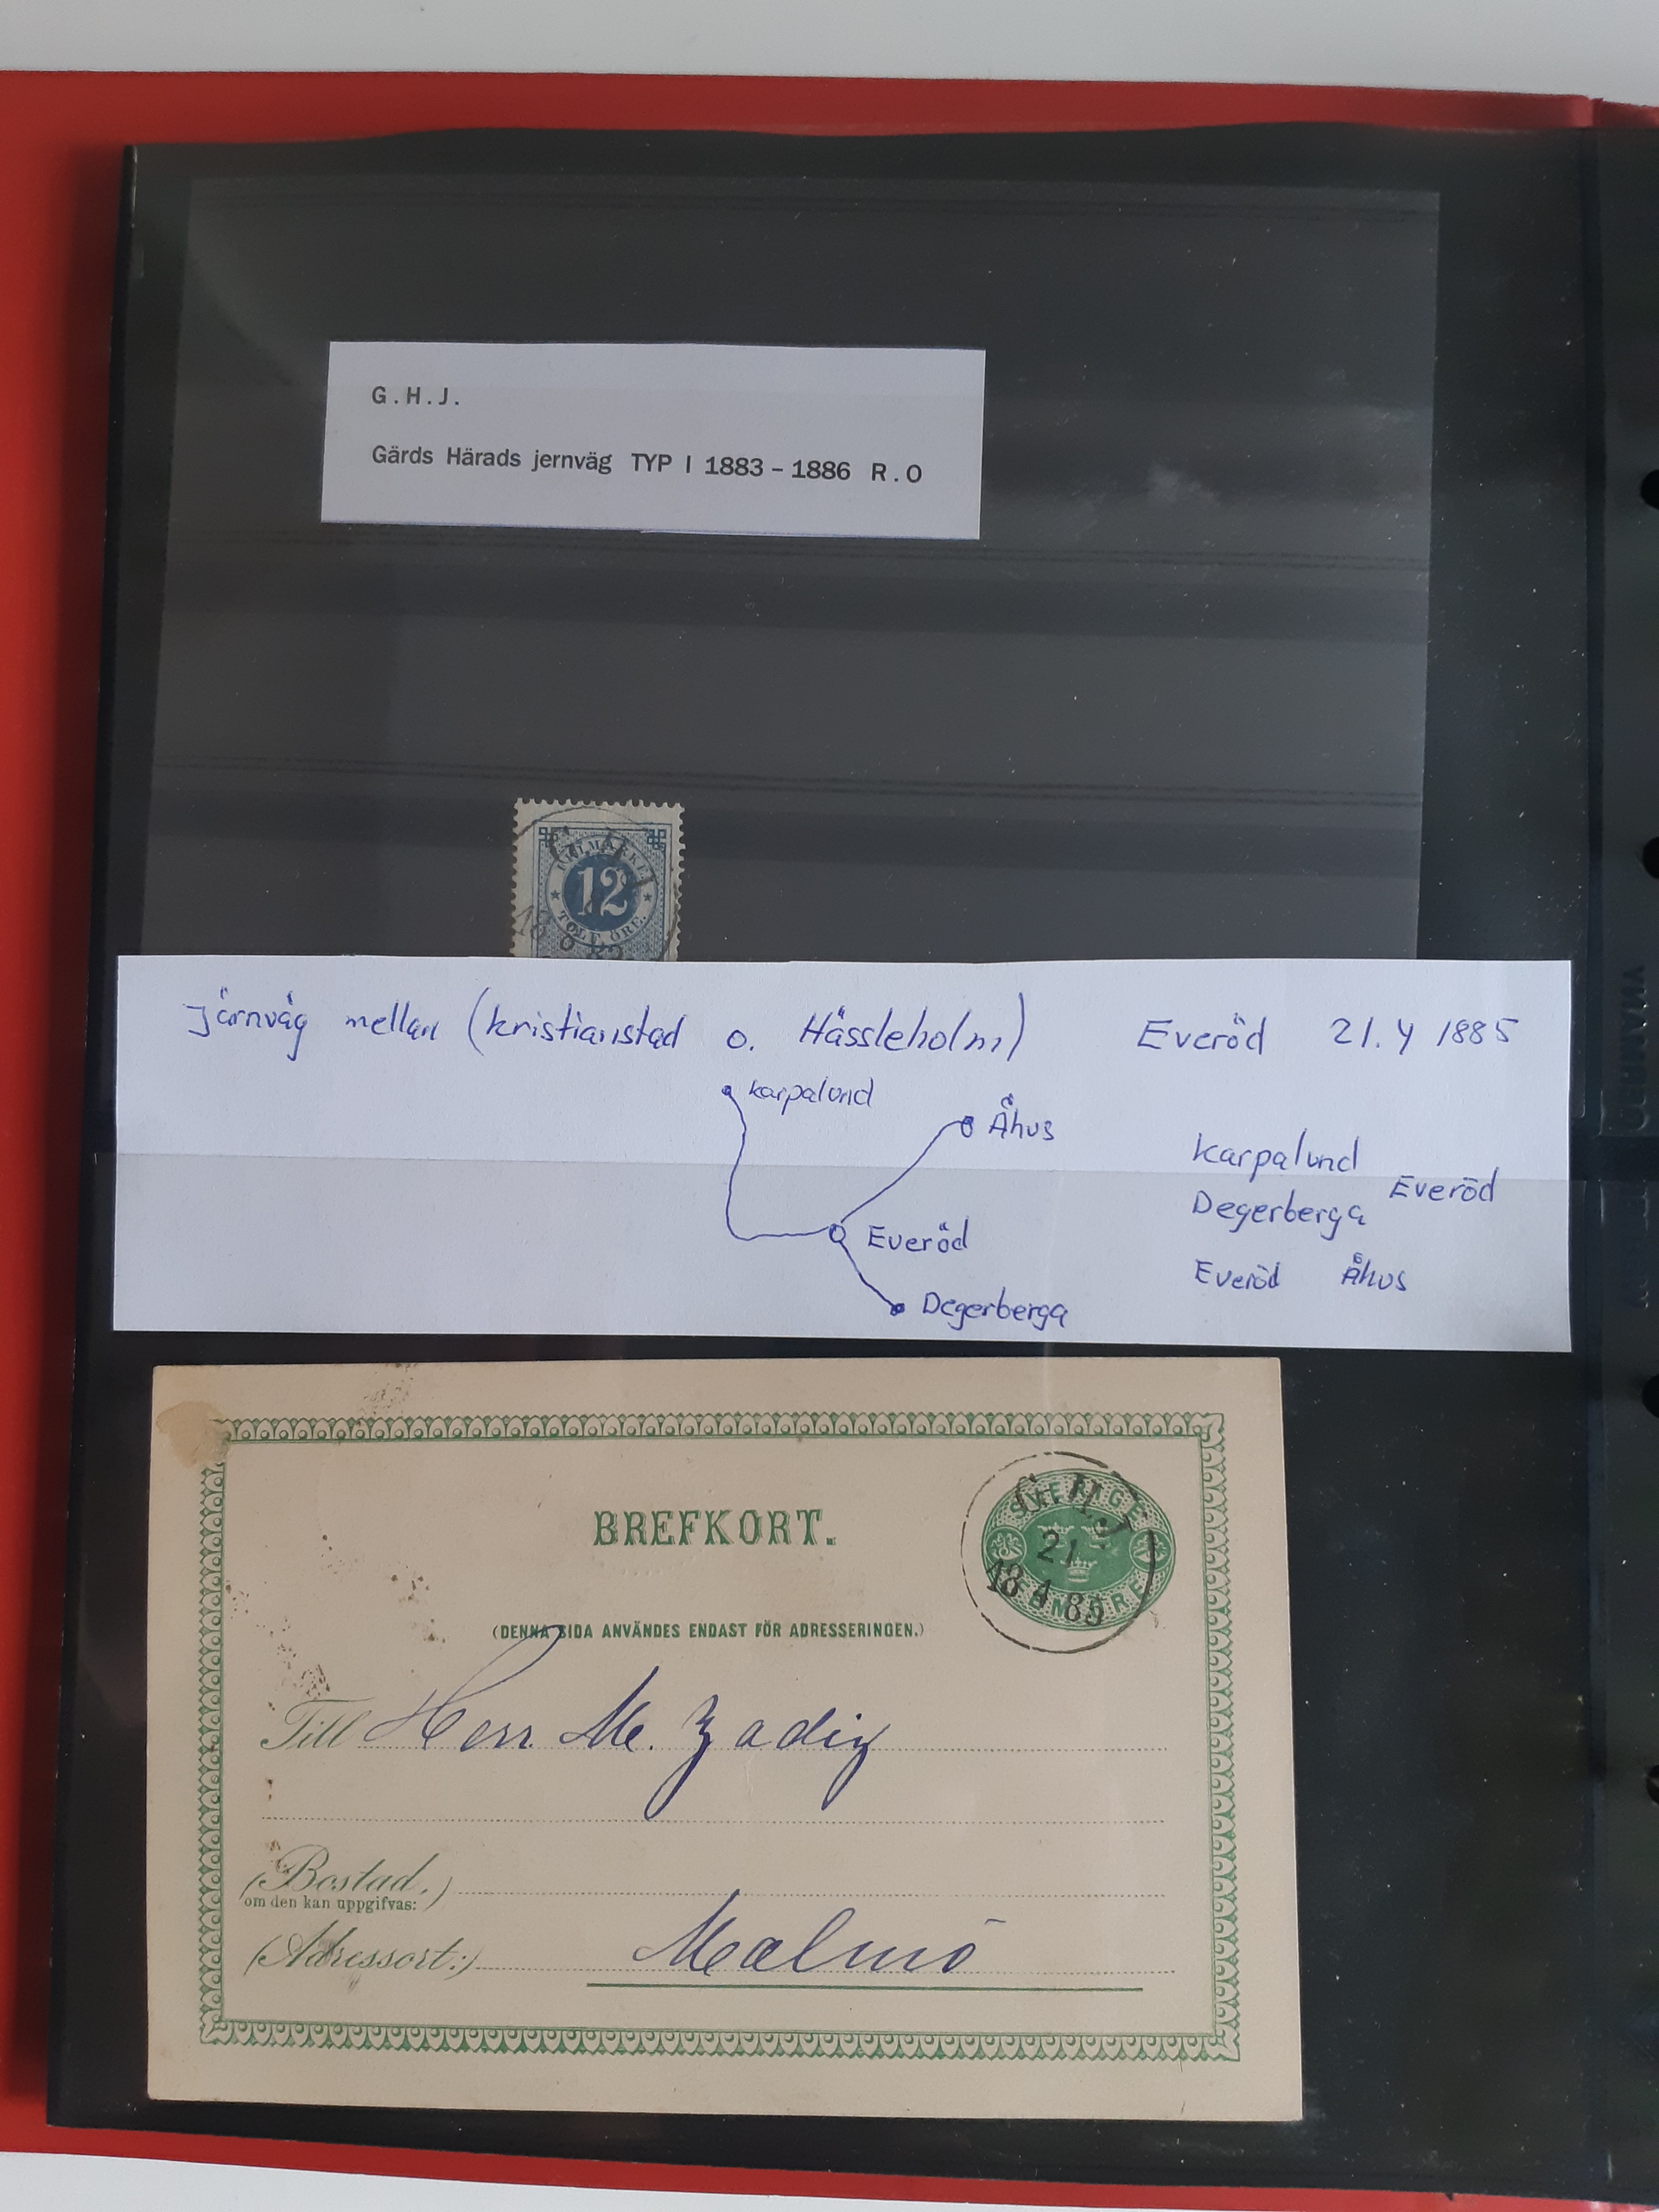 G.H.J.
Gärds Härads jernväg TYP I 1883 – 1886 R.O
12
TOLF ÖRE.
Järnväg mellan (Kristianstad o. Hässleholm) Everöd 21.4 1885
Karpalund
Åhus
Karpalund
Everöd
Degerberga
Everöd
Everöd Åhus
Degerberga
BREFKORT.
SVERIGE
G.H.J
21
18 4 85
FEM ÖRE
(DENNA SIDA ANVÄNDES ENDAST FÖR ADRESSERINGEN.)
Till Herr M. Zadig
(Bostad,)
om den kan uppgifvas:
(Adressort:) Malmö